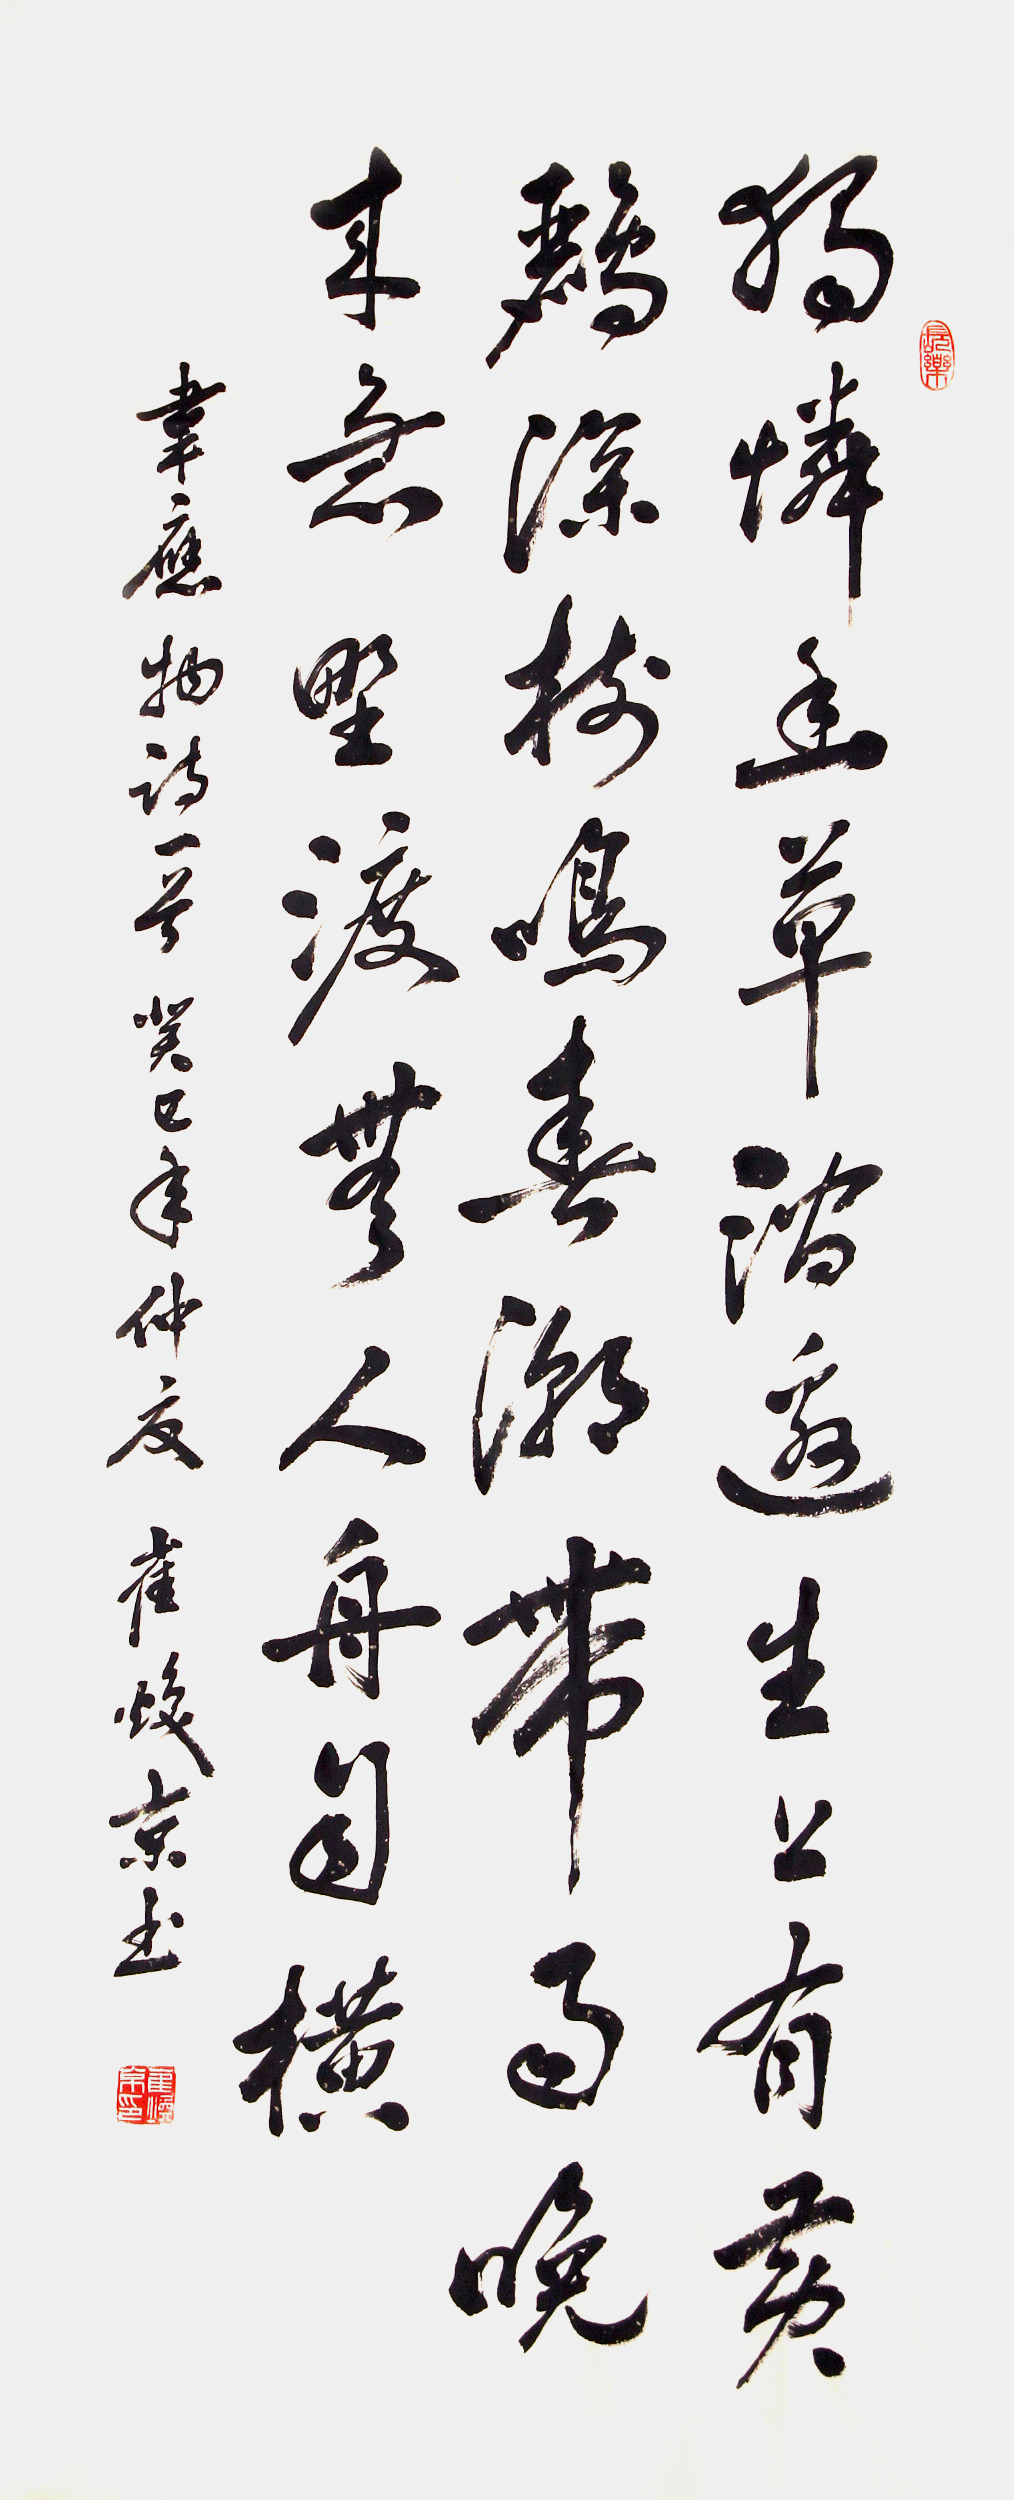 長樂
獨憐幽草澗邊生上有黃
鸝深樹鳴春潮帶雨晚
來急野渡無人舟自橫
韋應物诗一首 癸巳年仲夏 崔京书